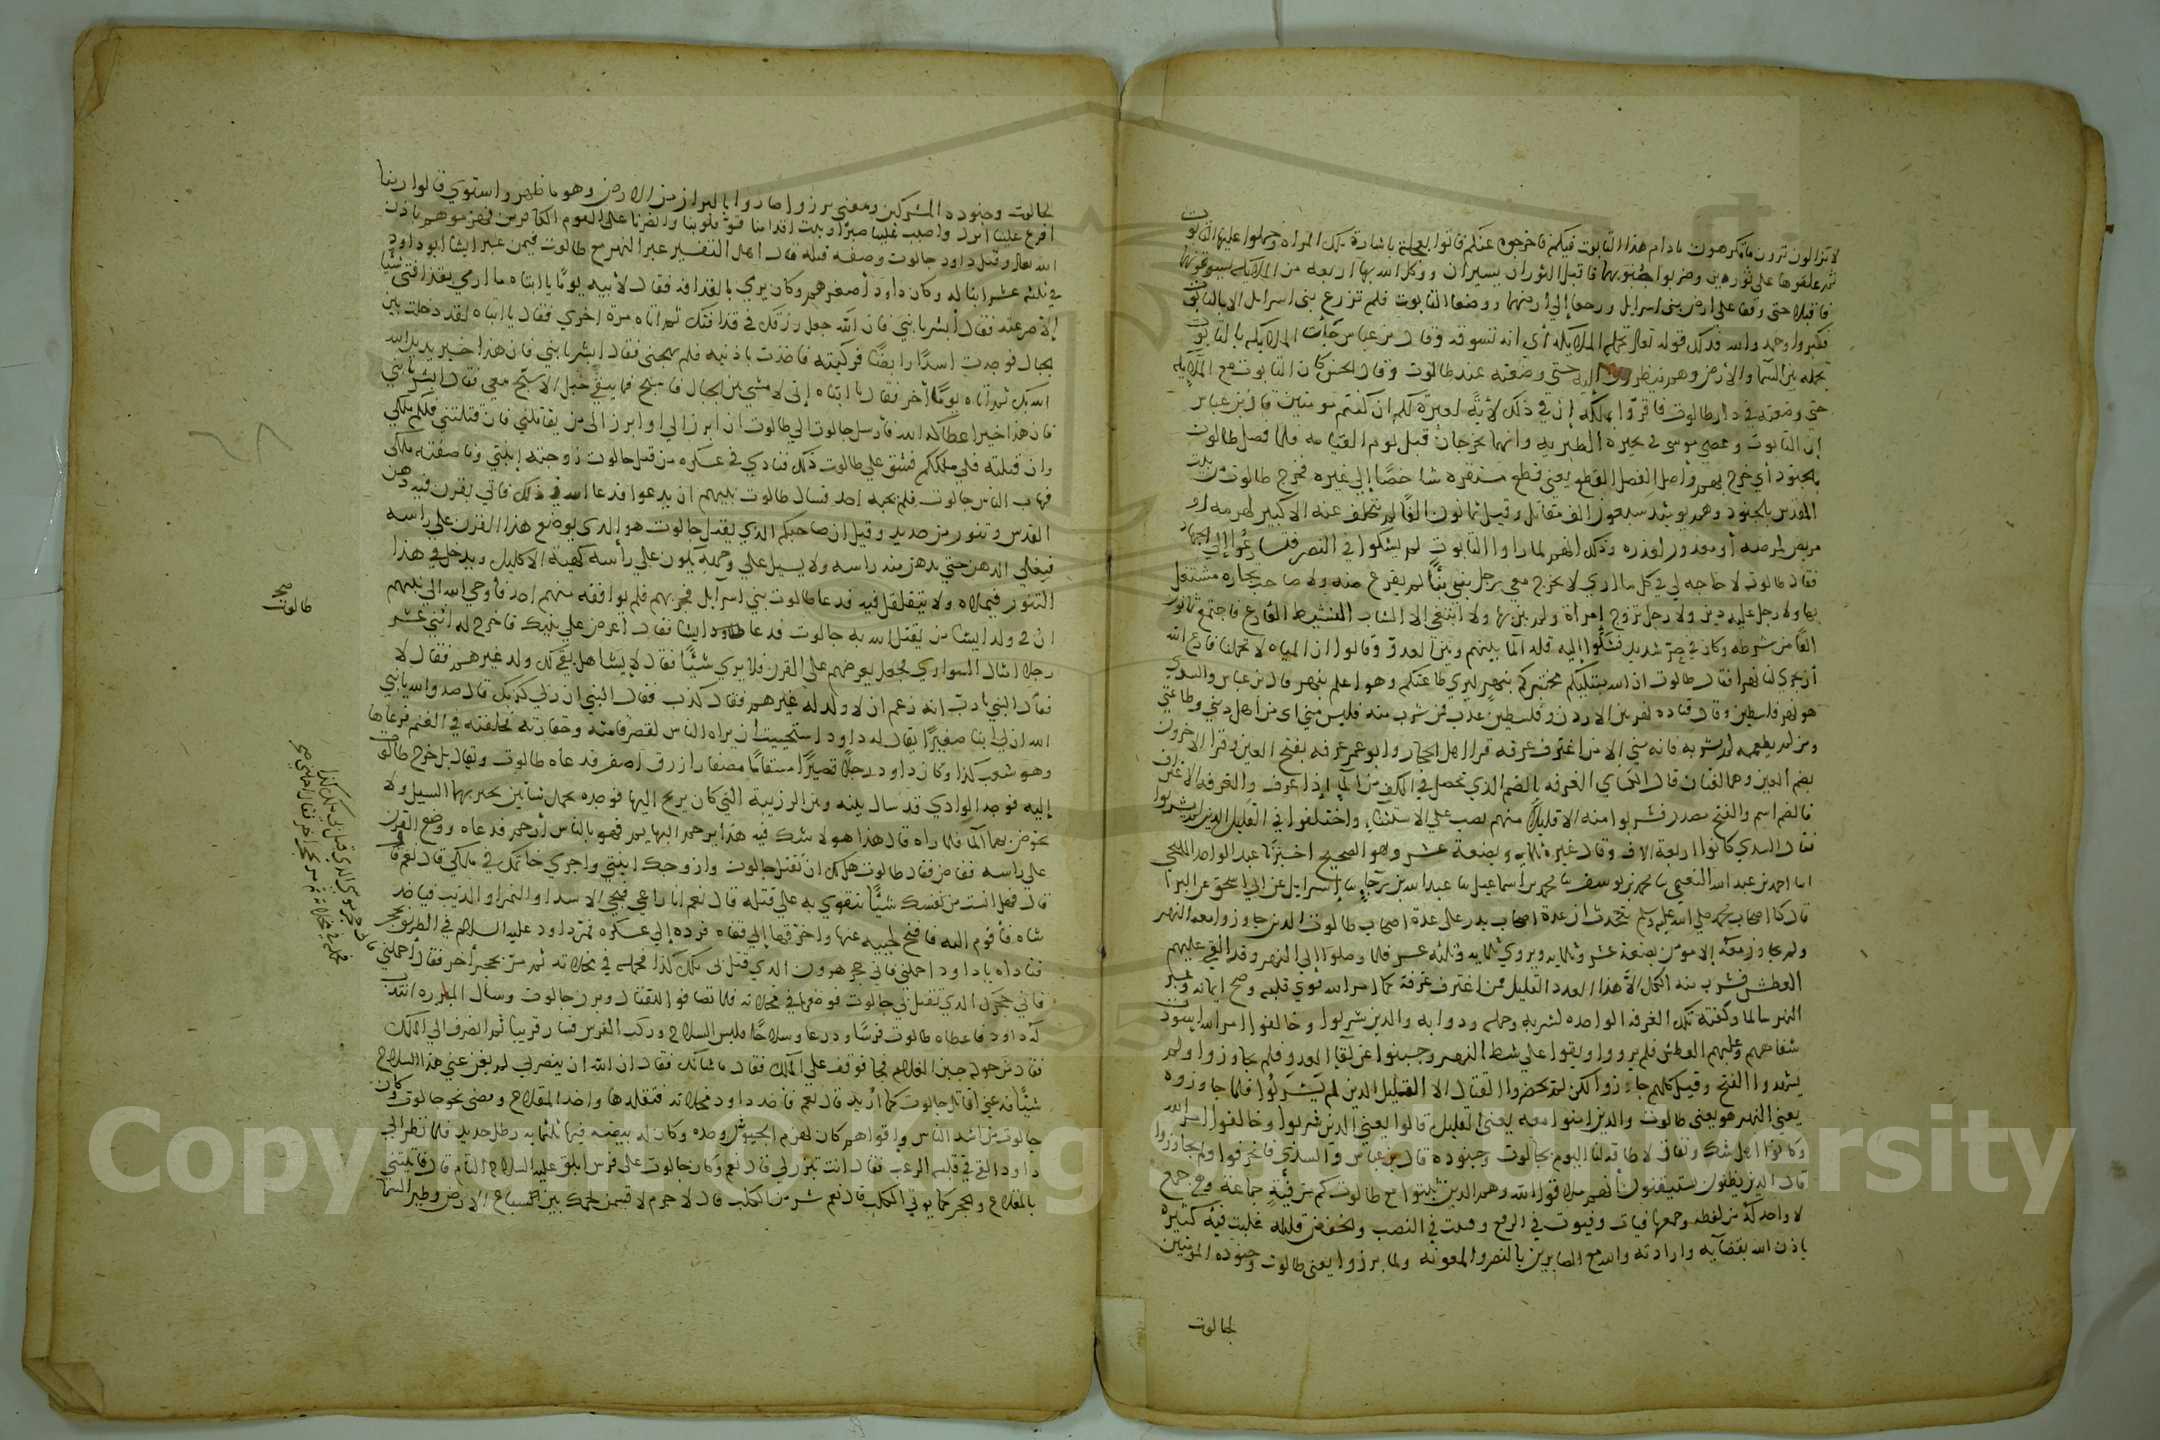 لا تزالون ترون ما تكرهون ما دام هذا التابوت فيكم فاخرجوه عنكم فاتوا بعجلة باشارة تلك المراه وحملوا عليها التابوت
ثم علقوها على ثورين وضربوا جنوبهما فاقبل الثوران يسيران ووكل الله بها اربعه من الملايكه يسوقونها
فاقبلا حتى وقفا على ارض بني اسرايل ورجعا إلى ارضهما ووضعا التابوت فلم تزرع بني اسرايل الا بالتابوت
فكبروا وحمدوا الله فذلك قوله تعالى تحمله الملايكه أي انه تسوقه وقال بن عباس جأت الملايكه بالتابوت
تحمله بين السما والأرض وهم ينظرون إليه حتى وضعته عند طالوت وقال الحسن كان التابوت مع الملايكه
حتى وضعته في دار طالوت فاقروا بملكه إن في ذلك لأية لعبرة لكم ان كنتم مومنين قال بن عباس
إن التابوت وعصى موسى في بحيرة الطبريه وانهما يخرجان قبل يوم القيامه فلما فصل طالوت
بالجنود أي خرج بهم وأصل الفصل القطع يعني قطع مستقره شاخصًا إلى غيره فخرج طالوت من بيت
المقدس بالجنود وهم يومئذ سبعون الف مقاتل وقيل ثمانون الفًا لم يتخلف عنه الا كبير لهرمه او
مريض لمرضه أو معذور لعذره وذلك انهم لما راوا التابوت لم يشكوا في النصر فتسارعوا إلى الجهاد
فقال طالوت لا حاجه لي في كل ما اري لا يخرج معي رجل بنى بنًا لم يفرغ منه ولا صاحب تجاره مشتغل
بها ولا رجل عليه دين ولا رجل تزوج إمرأة ولم يبن بها ولا ابتغي الا الشاب النشيط الفارغ فاجتمع ثمانون
الفًا من شرطه وكان في حرّ شديد فشكوا إليه قله الما بينهم وبين العدو وقالوا ان المياه لا تحملنا فادع الله
أن يجري لنا نهرا فقال طالوت ان الله مبتليكم مختبركم بنهر ليري طاعتكم وهو اعلم بنهر قال بن عباس والسدي
هو نهر فلسطين وقال قتاده نهر بين الاردن وفلسطين عذب فمن شرب منه فليس مني اى من أهل ديني وطاعتي
ومن لم يطعمه لم يشربه فانه مني الا من اغترف غرفه قرا اهل الحجاز وابو عمر غرفه بفتح الغين وقرا الاخرون
بضم الغين وهما لغتان قال الكساي الغرفه بالضم الذي تحصل في الكف من الما إذا غرف والغرفه الاغتراف
فالضم اسم والفتح مصدر فشربوا منه الا قليلا منهم نصب على الاستثناء واختلفوا في القليل الذين لم يشربوا
فقال السدي كانوا اربعة الاف وقال غيره ثلاثمايه وبضعة عشر وهو الصحيح اخبرنا عبد الواحد المليحي
انا احمد بن عبد الله النعيمي نا محمد بن يوسف نا محمد بن اسماعيل نا عبد الله بن رجا نا إسرايل عن ابي اسحق عن البرا
قال كنا اصحاب محمد صلى الله عليه وسلم نتحدث ان عدة اصحاب بدر على عدة اصحاب طالوت الذين جاوزوا معه النهر
ولم يجاوز معه إلا مومن بضعة عشر وثلاثمايه ويروى ثلاثمايه وثلثه عشر فلما وصلوا إلى النهر وقد القي عليهم
العطش فشرب منه الكل الا هذا العدد القليل فمن اغترف غرفة كما امر الله قوي قلبه وصح ايمانه وعبر
النهر سالما وكفته تلك الغرفه الواحده لشربه وحمله ودوابه والذين شربوا وخالفوا امر الله اسودت
شفاههم وغلبهم العطش فلم يرووا وبقوا على شط النهر وجبنوا عن لقا العدو فلم يجاوزوا ولم
يشهدوا الفتح وقيل كلهم جاوزوا لكن لم يحضروا القتال الا القليل الذين لم يشربوا فلما جاوزوه
يعني النهر هو يعني طالوت والذين امنوا معه يعني القليل قالوا يعني الذين شربوا وخالفوا امر الله
وكانوا اهل شك ونفاق لا طاقه لنا اليوم بجالوت وجنوده قال بن عباس والسدي فانحرفوا ولم يجاوزوا
قال الذين يظنون يستيقنون أنهم ملاقوا الله وهم الذين ثبتوا مع طالوت كم من فيه جماعه وهي جمع
لا واحد له من لفظه وجمعها فيات وفيون في الرفع وفئين في النصب والخفض قليله غلبت فيه كثيره
باذن الله بقضايه وارادته والله مع الصابرين بالنصر والمعونه ولما برزوا يعني طالوت وجنوده المومنين
لجالوت
لجالوت وجنوده المشركين ومعنى برزوا صاروا بالبراز من الارض وهو ما ظهر واستوي قالوا ربنا
افرغ علينا انزل واصبب علينا صبرًا وثبت اقدامنا قوّ قلوبنا وانصرنا على القوم الكافرين فهزموهم باذن
الله تعالى وقتل داود جالوت وصفه قتله قال اهل التفسير عبر النهر مع طالوت فيمن عبر ايشا ابو داود
في ثلثه عشر ابنا له وكان داود أصغرهم وكان يرمي بالقذافه فقال لأبيه يومًا يا ابتاه ما ارمي بقذافتي شيًا
إلا صرعته فقال أبشر يا بني فان الله جعل رزقك في قذافتك ثم اتاه مرة اخرى فقال يا ابتاه لقد دخلت بين
الجبال فوجدت اسدًا رابضًا فركبته فاخذت باذنيه فلم يهجني فقال ابشر يا بني فان هذا خير يريده الله
بك ثم اتاه يومًا أخر فقال يا ابتاه إني لامشي بين الجبال فاسبح فما يبقى جبل الا سبح معي فقال ابشر يا بني
فان هذا خيرا عطاكه الله فارسل جالوت الي طالوت ان ابرز الي او ابرز الي من يقاتلني فان قتلني فلكم ملكي
وان قتلته فلي ملككم فشق على طالوت ذلك فنادي في عسكره من قتل جالوت زوجته إبنتي وناصفته ملكي
فهاب الناس جالوت فلم يجبه احد فسال طالوت نبيهم ان يدعوا فدعا الله في ذلك فاتي بقرن فيه دهن
القدس وتنور من حديد وقيل ان صاحبكم الذي يقتل جالوت هو الذي يوضع هذا القرن على راسه
فيغلي الدهن حتى يدهن منه راسه ولا يسيل على وجهه يكون على رأسه كهيئه الاكليل ويدخل في هذا
التنور فيملاه ولا يتقلقل فيه فدعا طالوت بني اسرايل فجربهم فلم يوافقه منهم احد فاوحي الله الي نبيهم
ان في ولد ايشا من يقتل الله به جالوت فدعا ايشا فقال أعرض علي بنيك فاخرج له اثني عشر
رجلا امثال السواري فجعل يعرضهم على القرن فلا يري شيًا فقال لايشا هل بقى لك ولد غيرهم فقال لا
فقال النبي يا رب انه زعم ان لا ولد له غيرهم فقال كذب فقال النبي ان ربي كذبك قال صدق الله يا نبي
الله ان لي ابنا صغيرًا يقال له داود استحييت ان يراه الناس لقصر قامته وحقارته فخلفته في الغنم يرعاها
وهو شعب كذا وكان داود رجلًا قصيرًا مسقامًا مصفارا زرق اصفر فدعاه طالوت ويقال بل خرج طالوت
إليه فوجد الوادي قد سال بينه وبين الزريبة التي كان يريح اليها فوجده يحمل شاتين يجيز بهما السيل ولا
يخوض بهما الما فلما راه قال هذا هو لا شك فيه هذا يرحم البهايم فهو بالناس أرحم فدعاه ووضع القرن
علي راسه ففاض فقال طالوت هل لك ان تقتل جالوت وازوجك ابنتي واجري خاتمك في ملكي قال نعم قال
قال فهل انست من نفسك شيًا تتقوي به على قتله قال نعم انا راعي فيجي الاسد او النمر او الذيب فياخذ
شاه فاقوم اليه فافتح لحييه عنها واخرقها إلي قفاه فرده إلي عسكره فمر داود عليه السلام في الطريق بحجر
فناداه يا داود احملني فاني حجر هرون الذي قتل بى ملك كذا فحمله في مخلاته ثم مرّ بحجر أخر فقال أحملني
فاني حجرك الذي تقتل بي جالوت فوضعها في مخلاته فلما تصافوا للقتال وبرز جالوت وسأل المبارزه انتدب
له داود فاعطاه طالوت فرسًا ودرعا وسلاحًا فلبس السلاح وركب الفرس فسار قريبا ثم انصرف الي الملك
فقال من حوله جبن الغلام فجا فوقف على الملك فقال ما شانك فقال ان الله ان ينصرني لم يغن عني هذا السلاح
شيًا فدعني اقاتل جالوت كما أريد قال نعم فاخذ داود مخلاته فتقلدها واخذ المقلاع ومضى نحو جالوت وكان
جالوت من اشد الناس وإقواهم كان يهزم الجيوش وحده وكان له بيضه فيها ثلثمايه رطل حديد فلما نظر الي
داود القي في قلبه الرعب فقال انت تبرز لي قال نعم وكان جالوت على فرس ابلق عليه السلاح التام قال فاتيتني
بالمقلاع والحجر كما يوتي الكلب قال نعم شر من الكلب قال لا جرم لا قسمن لحمك بين سباع الارض وطير السما
طالوت صح